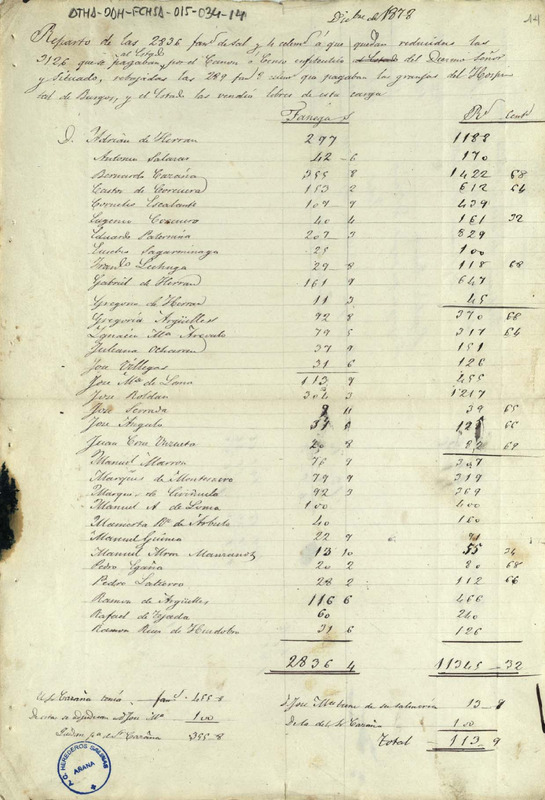 DTHA-DDH-FCHSA-015-034-14
Dicbre de 1878
14
Reparto de las 2836 fans de sal y 4 celems á que quedan reducidas las
3126 que se pagaban por el Canon ó Censo enfiteutico al Estado del Decimo Señor
y Situado, rebajadas las 289 que pagaban las granjas del Hospi
tal de Burgos, y el Estado las vendió libre de esta carga
Fanegas Rs Cents
D. Adrian de Herran 297 1188
Antonio Salazar 42 - 6 170
Bernardo Cazaña 355 8 1422 68
Castor de Corcuera 153 2 612 64
Cornelio Escalante 109 9 439
Eugenio 40 4 161 32
Eduardo Paternina 207 3 829
Eusebio Sagarminaga 25 100
Franco Lechuga 29 8 118 68
Gabriel de Herran 161 9 647
Gregorio de Herran 11 3 45
Gregoria Argüelles 92 8 370 68
Ignacia Ma Arevalo 79 5 317 64
Juliana Ochanen 37 9 151
Jose Villegas 31 6 126
Jose Ma de Loma 113 9 455
Jose Roldán 304 3 1217
Jose Serrada 9 11 39 65
Jose Angulo 31 125 66
Juan Cruz Unzueta 20 8 82 68
Manuel Marron 76 9 307
Marqués de Montesacro 79 9 319
Marqués de Ciriñuela 92 3 369
Manuel A. de Loma 100 400
Mamerta de Arbieto 40 160
Manuel Guinea 22 9 91
Manuel Mora Manzanos 13 10 55 34
Pedro Egaña 20 2 80 68
Pedro Salierro 28 2 112 66
Ramon de Argüelles 116 6 466
Rafael de Tejada 60 240
Ramon Ruiz de Huidobro 31 6 126
2836 4 11345 - 32
Cazaña tenia fans 455-8
adjudican a Jose Ma 100
Cazaña 355-8
Jose de su 13 - 9
de Cazaña 100
Total 113 9
A.G. HEREDEROS SALINAS
AÑANA